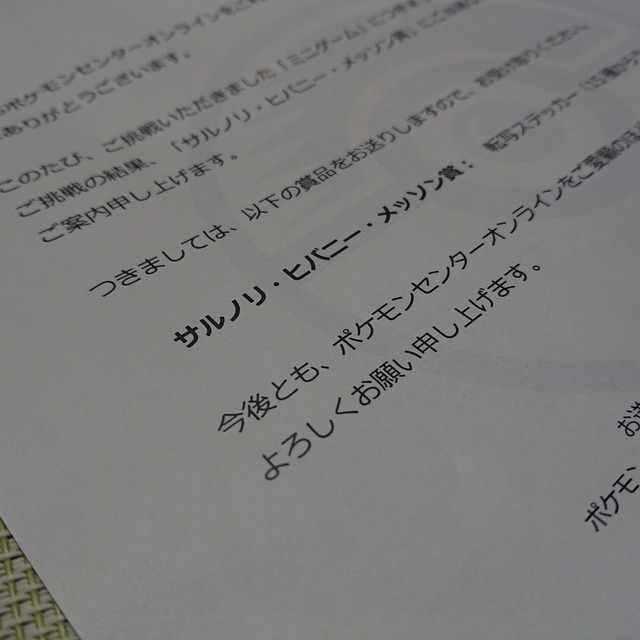 ポケモンセンターオンラインをご利
ありがとうございます。
このたび、ご挑戦いただきました「ミニゲーム」につきまし
ご挑戦の結果、「サルノリ・ヒバニー・メッソン賞」にご当選
ご案内申し上げます。
つきましては、以下の賞品をお送りしますので、お受け取りください。
サルノリ・ヒバニー・メッソン賞： 転写ステッカー
今後とも、ポケモンセンターオンラインをご愛顧の
よろしくお願い申し上げます。
お送
ポケモン